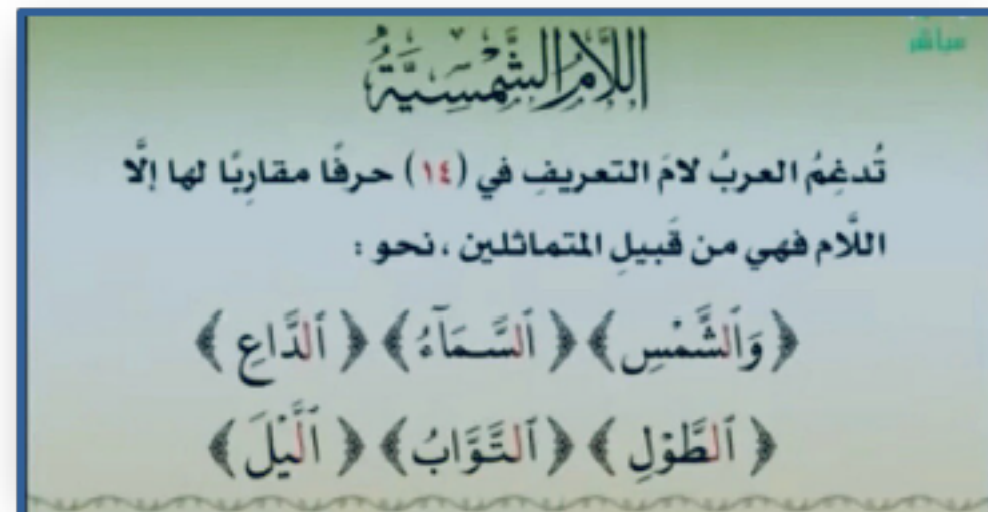 مباشر
اللَّامُ الشَّمْسِيَّةُ
تُدغِمُ العربُ لامَ التعريفِ في (١٤) حرفًا مقاربًا لها إلَّا
اللَّام فهي من قَبيلِ المتماثلين ، نحو :
﴿ وَٱلشَّمْسِ ﴾ ﴿ ٱلسَّمَآءُ ﴾ ﴿ ٱلدَّاعِ ﴾
﴿ ٱلطَّوْلِ ﴾ ﴿ ٱلتَّوَّابُ ﴾ ﴿ ٱلَّيْلَ ﴾